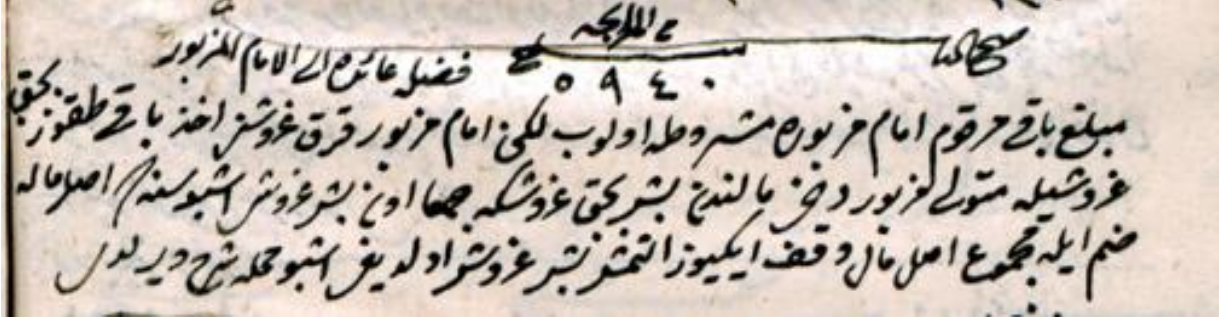 صح الباقی
فضله عائده الی الامام المزبور
٠ ٤ ٩ ٥
مبلغ باقی مرقوم امام مزبوره مشروطه اولوب لكن امام مزبور قرق غروش اخذ باقی طقوز بچق
غروشیله متولی مزبور دخی مالندن بش بچق غروشكه جمعا اون بش غروش اشبو سنه ده اصل ماله
ضم ایله مجموع اصل مال وقف ایكیوز التمش بش غروش اولدیغی اشبو محله شرح ویرلدی